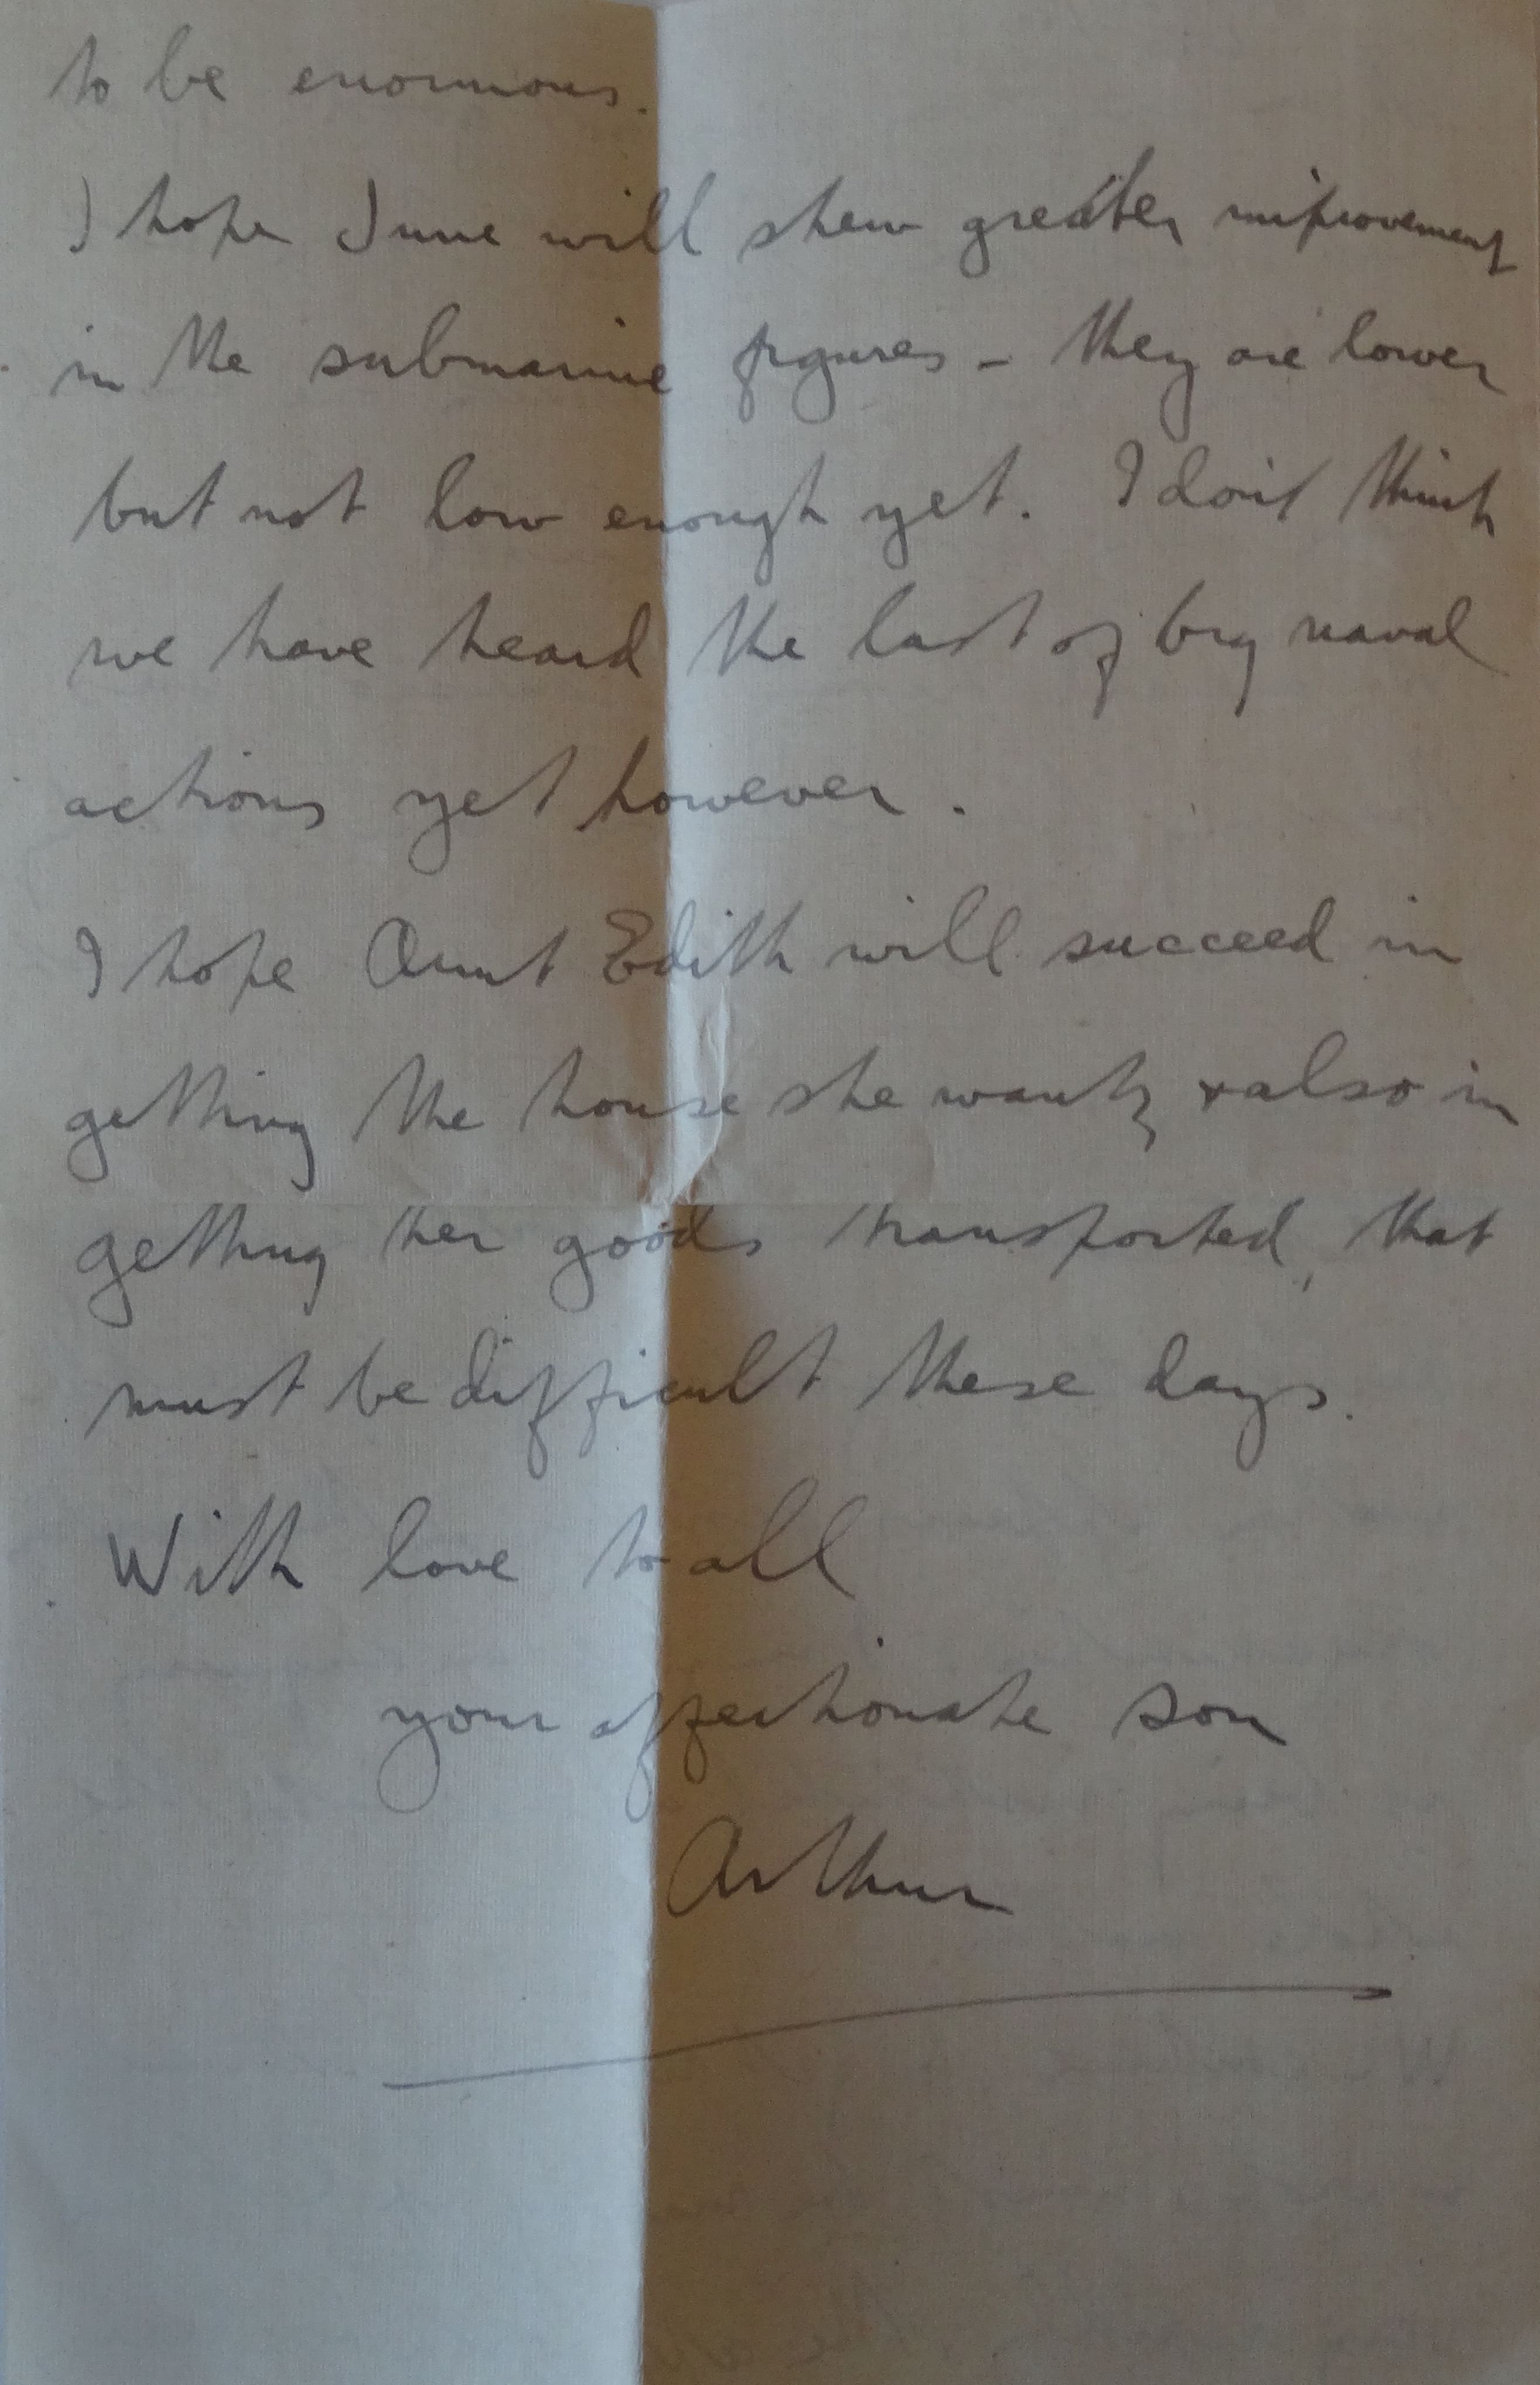 to be enormous.
I hope June will shew greater improvement
in the submarine figures - they are lower
but not low enough yet. I don't think
we have heard the last of big naval
actions yet however.
I hope Aunt Edith will succeed in
getting the house she wants & also in
getting her goods transported, that
must be difficult these days.
With love to all
your affectionate son
Arthur